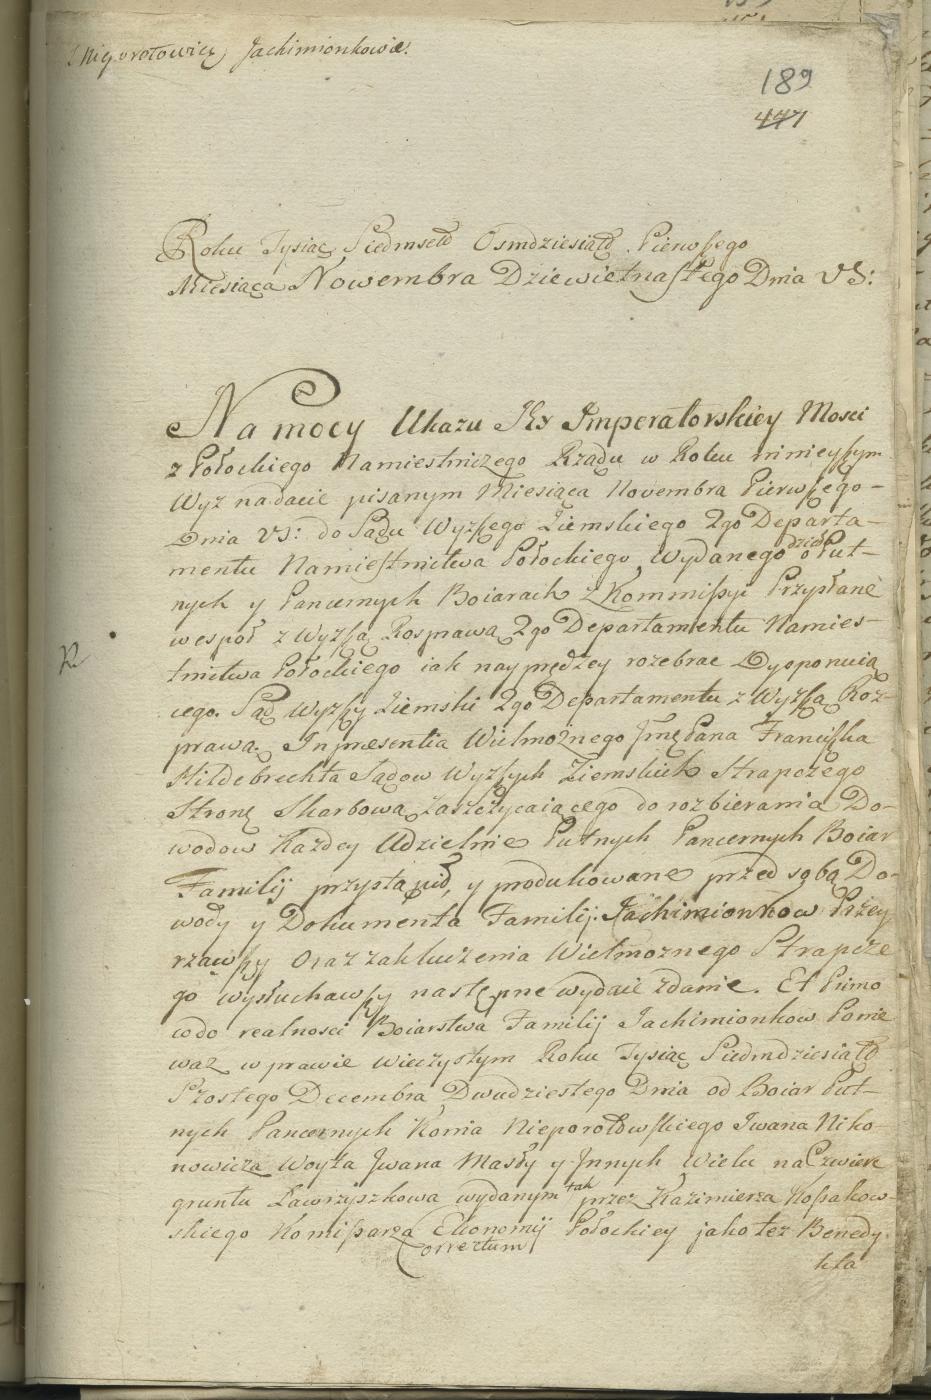 Jachimionkowie.
189
447
Roku Tysiąc Siedmsetd Osmdziesiątd Pierwszego
Miesiąca Nowembra Dziewietnastego Dnia VS:
Na mocy Ukazu Jey Imperatorskiey Mosci
z Połockiego Namiestniczego Rządu w Roku ninieyszym
Wyz na dacie pisanym Miesiąca Novembra Pierwszego –
Dnia VS: do Sądu Wyzszego Ziemskiego 2go Departa–
mentu Namiestnictwa Połockiego, Wydanego o Put–
nych y Pancernych Boiarach z Kommissyi Przysłane
wespoł z Wyzszą Rosprawą 2go Departamentu Namies–
tnictwa Połockiego iak nayprędzey rozebrac Dysponuią
cego. Sąd Wyzszy Ziemski 2go Departamentu z Wyzszą Roz–
prawą. In praesentia Wielmoznego Jmę Pana Franciszka
Hildebrechta Sądow Wyzszych Ziemskich Strapczego
Stronę Skarbową zaszczycaiącego do rozbierania Do–
wodow Kazdey Udzielnie Putnych Pancernych Boiar
Familij przystąpił, y produkowane przed sobą Do–
wody y Dokumenta Familij Jachimionkow Przey
rzawszy Oraz zakluczenia Wielmoznego Strapcze
go wysłuchawszy następne wydaie zdanie. Et Primo
co do realnosci Boiarstwa Familij Jachimionkow Ponie
waz w prawie wieczystym Roku Tysiąc Siedmdziesiątd
Szostego Decembra Dwudziestego Dnia od Boiar Put–
nych Pancernych Konia Nieporotowskiego Iwana Niko–
nowicza Woyta Jwana Masły y Jnnych Wielu na Czwierc
gruntu Ławrzyszkowa wydanym tak przez Kazimierza Kossakow–
skiego Komissarza Ekonomij Połockiey jako tez Benedy–
Correctum
kta